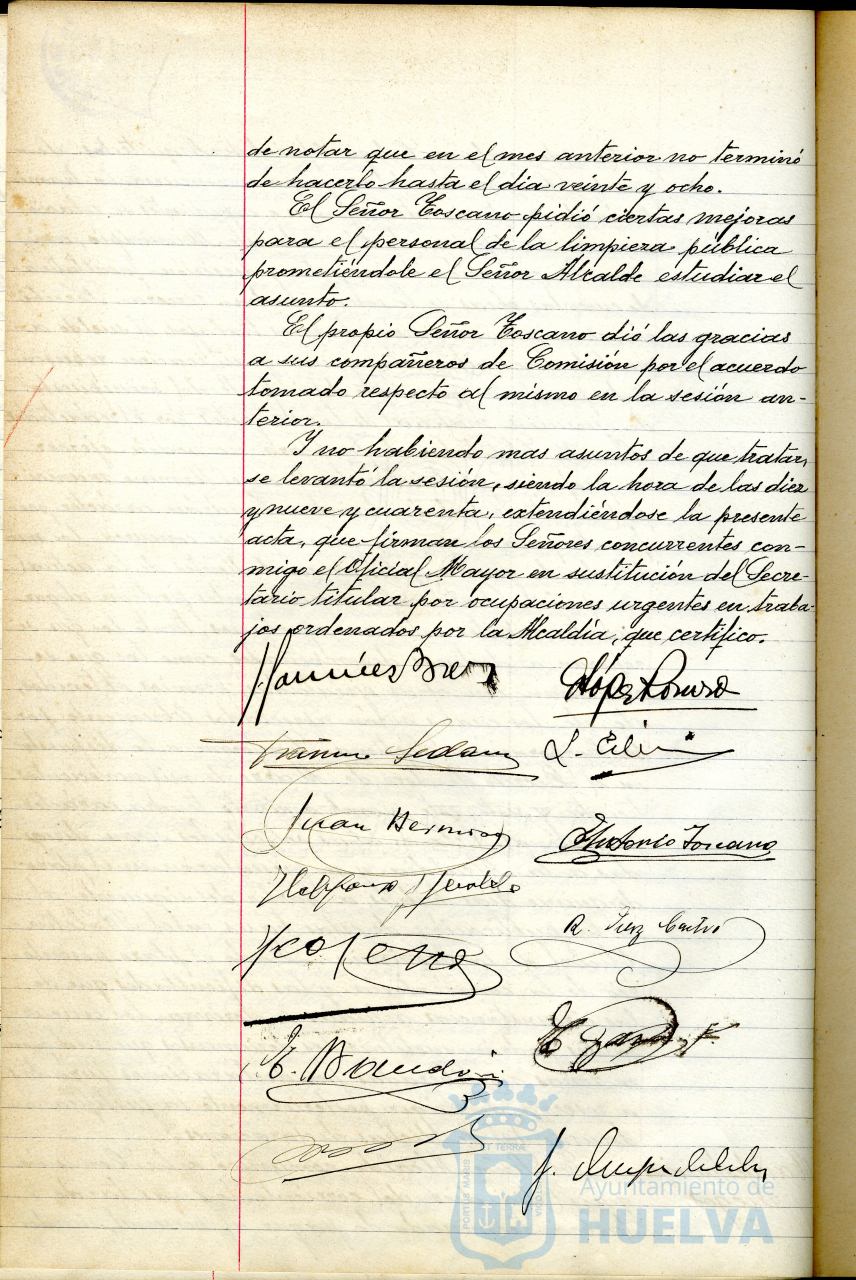 de notar que en el mes anterior no terminó
de hacerlo hasta el dia veinte y ocho.
El Señor Toscano pidió ciertas mejoras
para el personal de la limpieza pública
prometiéndole el Señor Alcalde estudiar el
asunto.
El propio Señor Toscano dió las gracias
a sus compañeros de Comisión por el acuerdo
tomado respecto al mismo en la sesión an-
terior.
Y no habiendo mas asuntos de que tratar,
se levantó la sesión, siendo la hora de las diez
y nueve y cuarenta, extendiéndose la presente
acta, que firman los Señores concurrentes con-
migo el Oficial Mayor en sustitución del Secre-
tario titular por ocupaciones urgentes en traba-
jos ordenados por la Alcaldía, que certifico.
López
Juan
Antonio Toscano
R. Castro
PORTUS MARIS ET TERRAE CUSTODIA
Ayuntamiento de
HUELVA